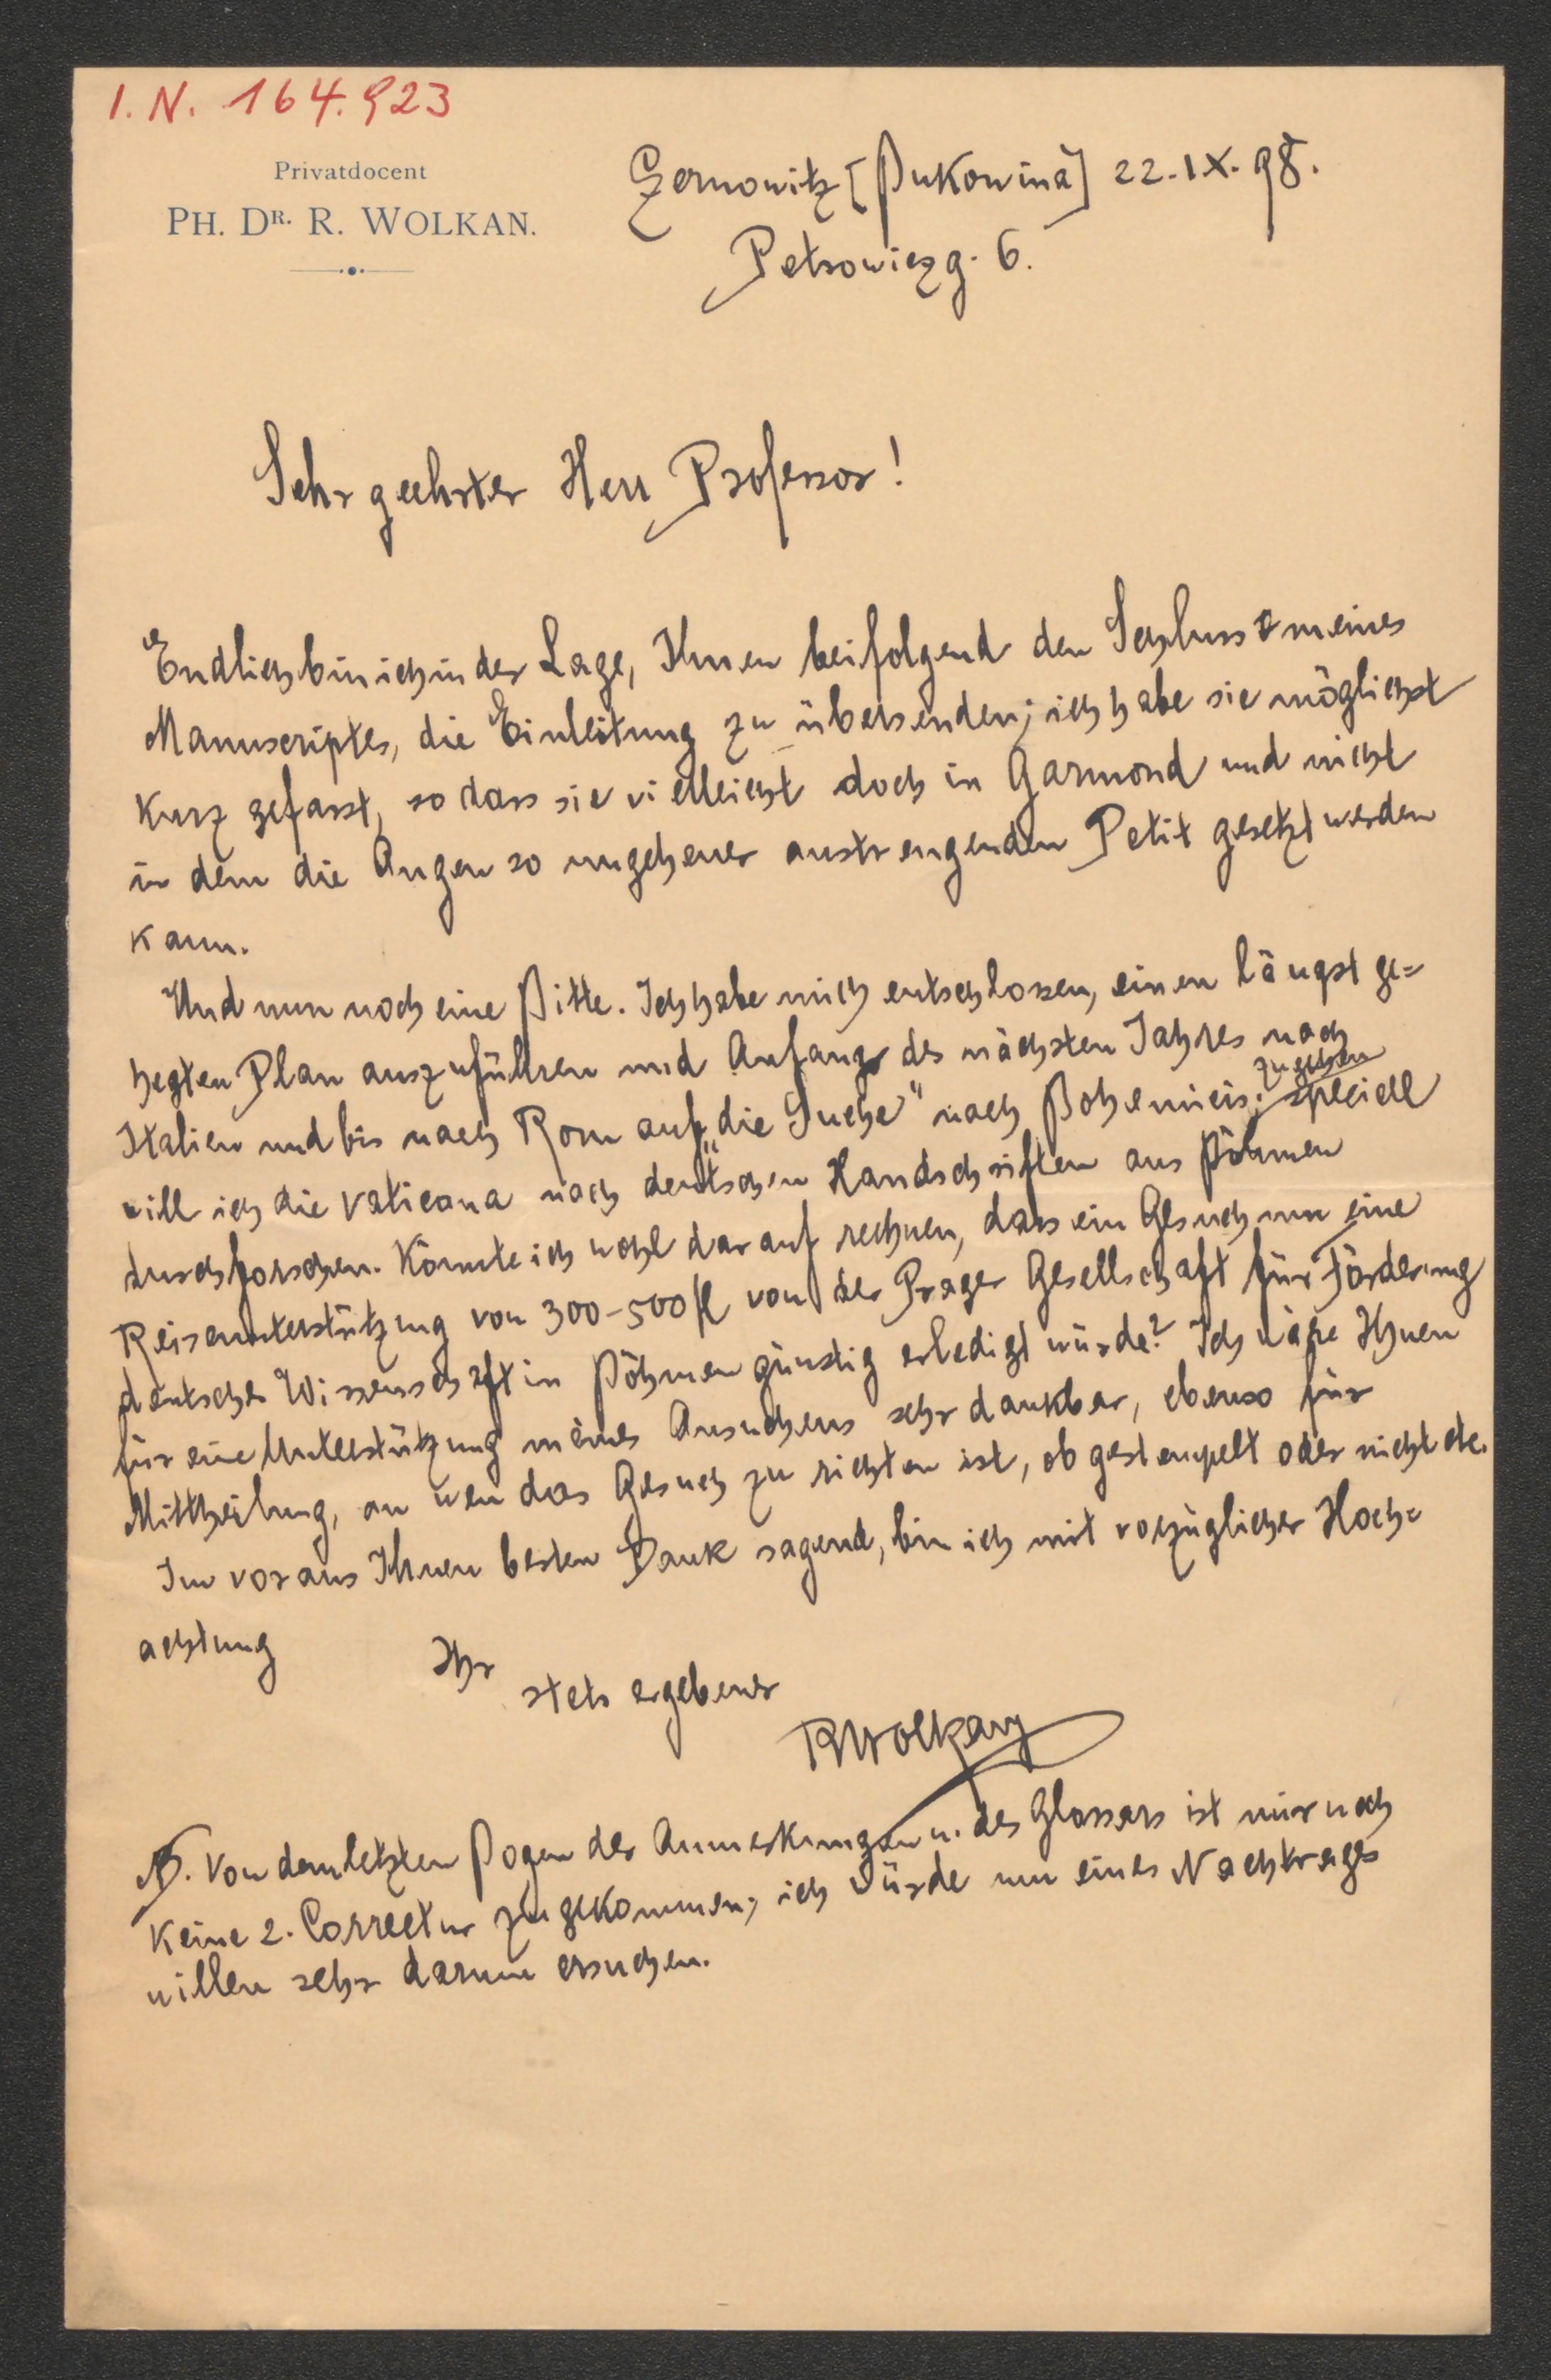 I. N. 164.923
Privatdocent
PH. DR. R. WOLKAN.
Czernowitz [Bukowina] 22.IX.98.
Petrowiczg. 6.
Sehr geehrter Herr Professor!
Endlich bin ich in der Lage, Ihnen beifolgend den Schluss meines
Manuscriptes, die Einleitung zu übersenden; ich habe sie möglichst
kurz gefasst, so dass sie vielleicht doch in Garmond und nicht
in dem die Augen so ungeheuer anstrengenden Petit gesetzt werden
kann.
Und nun noch eine Bitte. Ich habe mich entschlossen, einen längst ge=
hegten Plan auszuführen und Anfangs des nächsten Jahres nach
Italien und bis nach Rom auf „die Suche" nach Bohemicis zu gehen; speciell
will ich die Vaticana nach deutschen Handschriften aus Böhmen
durchforschen. Könnte ich wohl darauf rechnen, dass ein Gesuch um eine
Reiseunterstützung von 300-500 fl von der Prager Gesellschaft für Förderung
deutscher Wissenschaft in Böhmen günstig erledigt würde? Ich wäre Ihnen
für eine Unterstützung meines Ansuchens sehr dankbar, ebenso für
Mittheilung, an wen das Gesuch zu richten ist, ob gestempelt oder nicht etc.
Im voraus Ihnen besten Dank sagend, bin ich mit vorzüglicher Hoch=
achtung
Ihr
stets ergebener
RWolkan
NB. Von dem letzten Bogen der Anmerkungen u. des Glossars ist mir noch
keine 2. Correctur zugekommen; ich würde um eines Nachtrages
willen sehr darum ersuchen.